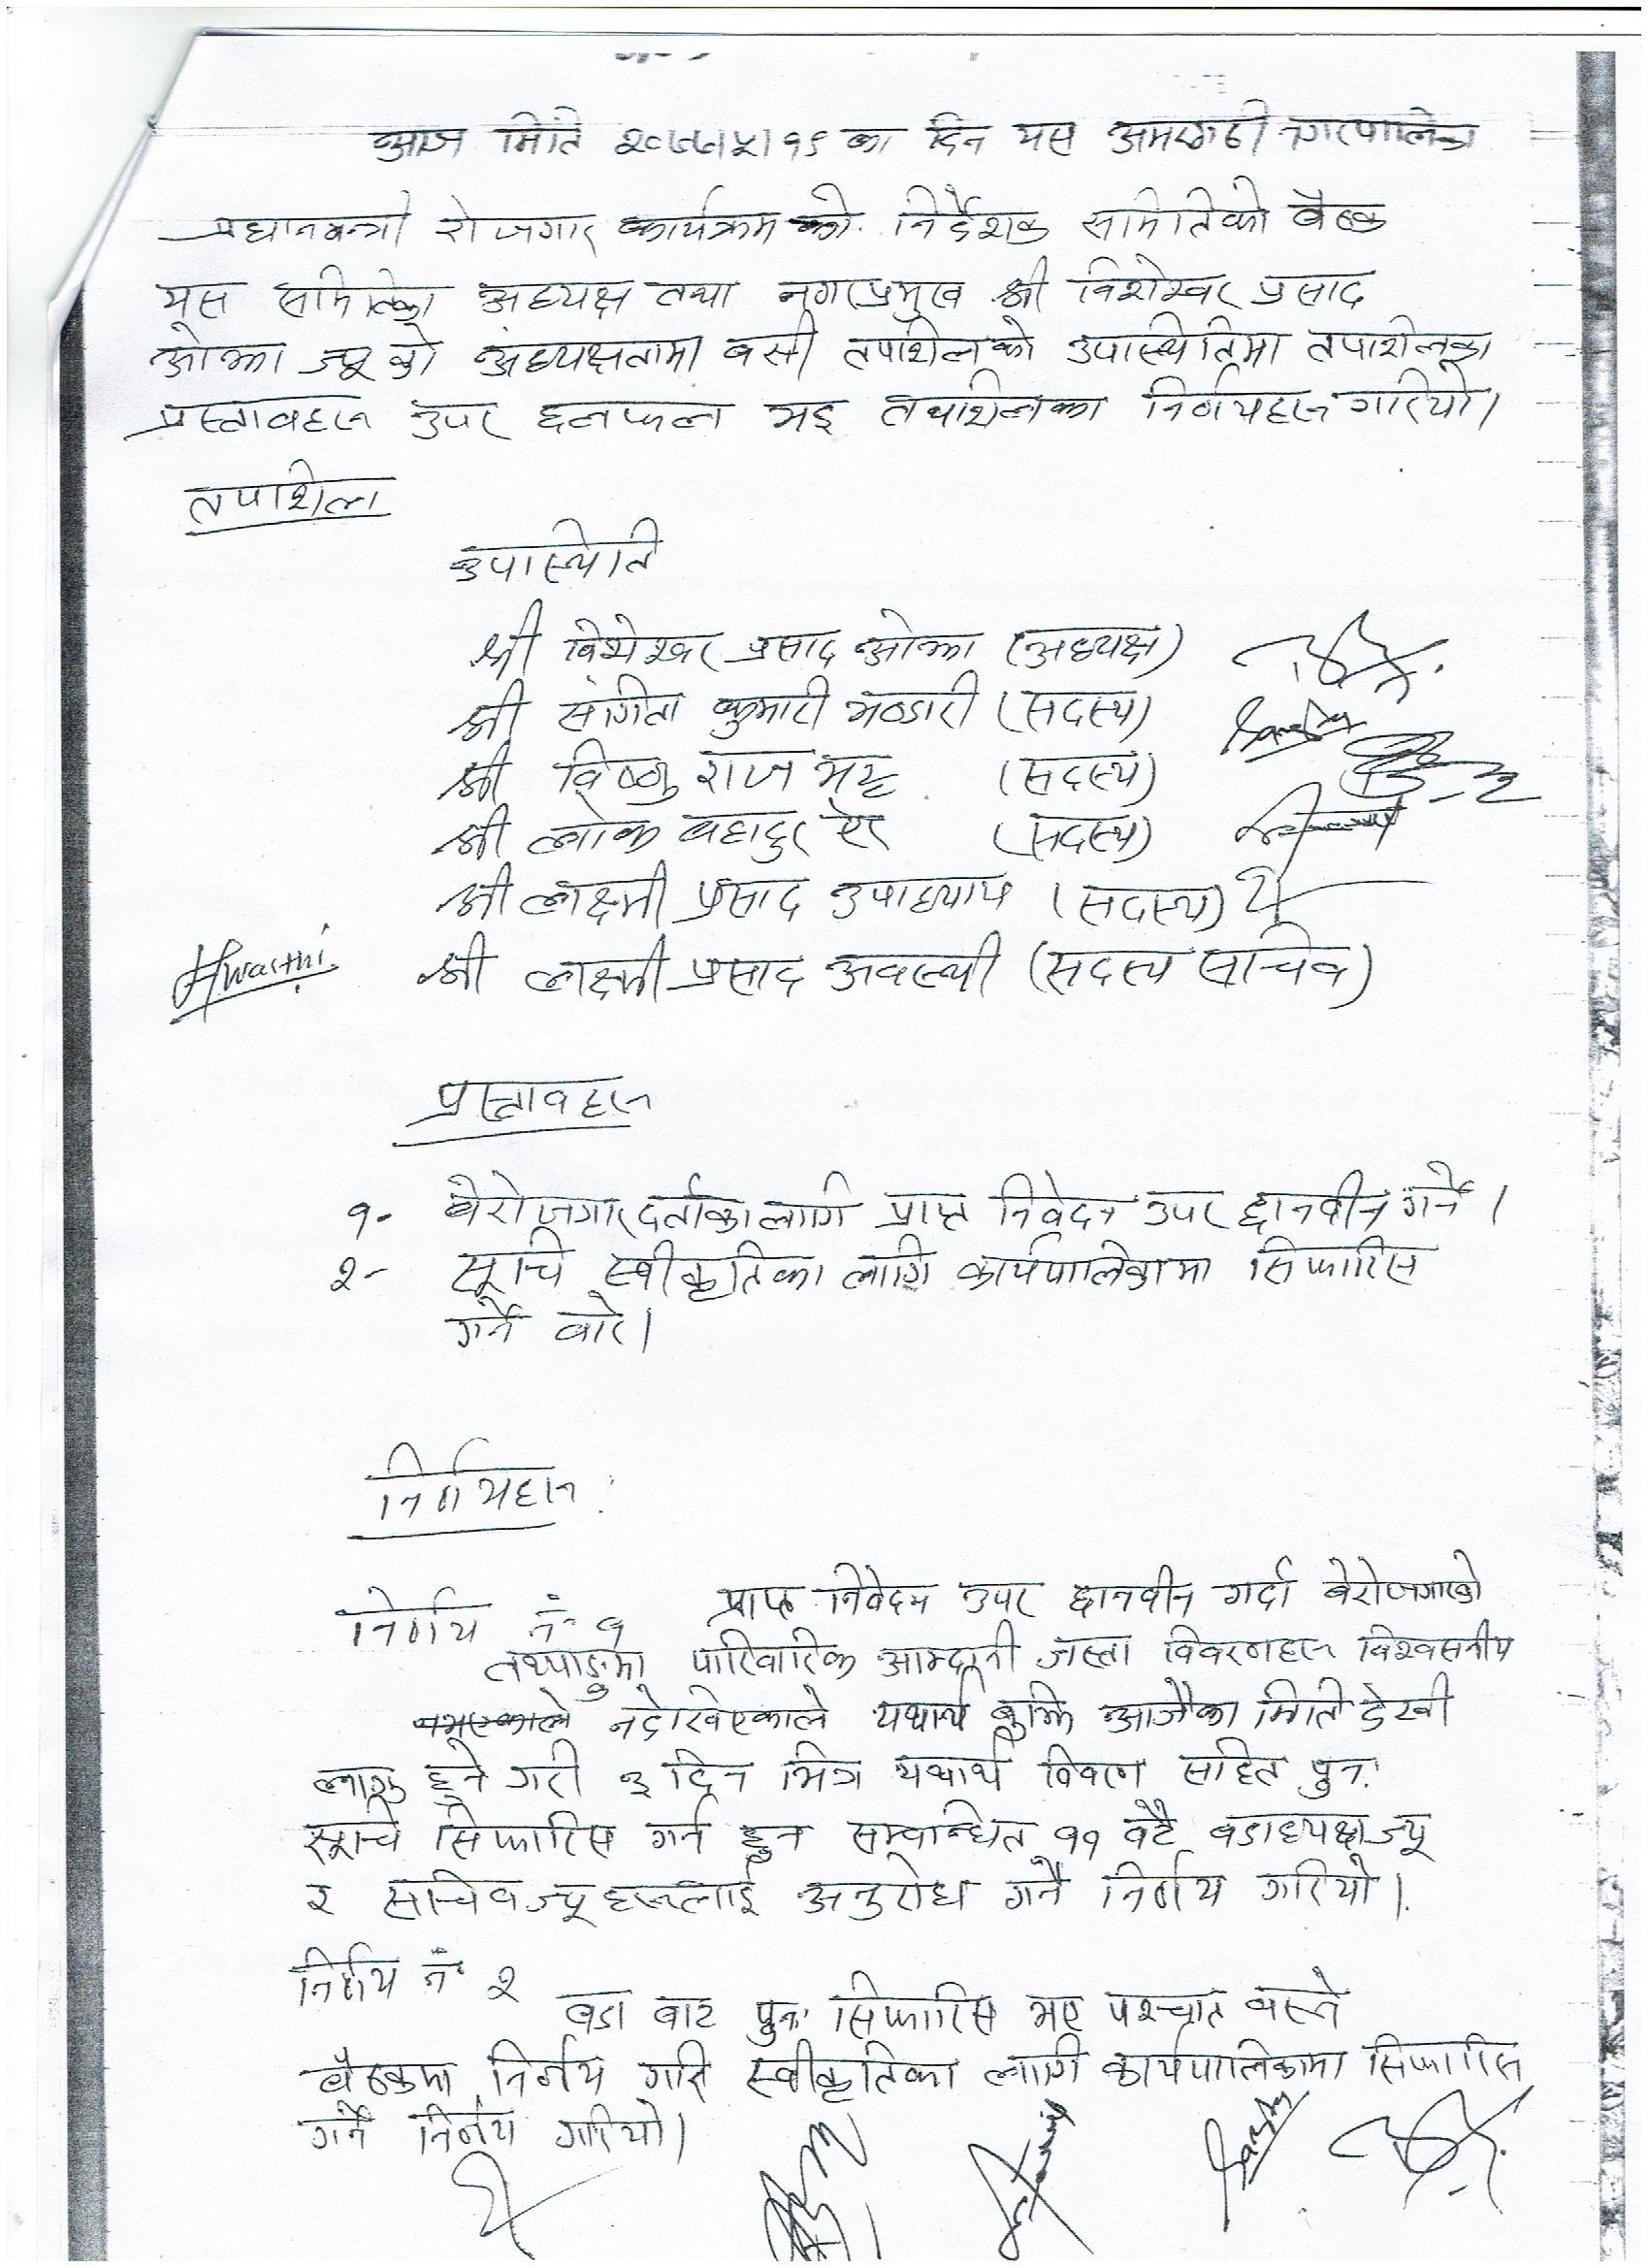 आज मिति २०७७।५।१९ का दिन यस अमरगढी नगरपालिका
प्रधानमन्त्री रोजगार कार्यक्रमको निर्देशक समितिको बैठक
यस समितिका अध्यक्ष तथा नगरप्रमुख श्री विशेश्वर प्रसाद
ओझा ज्यू को अध्यक्षतामा बसी तपाशिलको उपास्थितिमा तपाशिलका
प्रस्तावहरु उपर छलफल भइ तपाशिलका निर्णयहरु गरियो।
तपाशिल
उपास्थिति
श्री विशेश्वर प्रसाद ओझा (अध्यक्ष)
श्री संगिता कुमारी भण्डारी (सदस्य)
श्री विष्णु राज भट्ट (सदस्य)
श्री लोक बहादुर ऐर (सदस्य)
श्री लक्ष्मी प्रसाद उपाध्याय (सदस्य)
Awasthi श्री लक्ष्मी प्रसाद अवस्थी (सदस्य सचिव)
प्रस्तावहरु
१- बेरोजगार दर्ताका लागि प्राप्त निवेदन उपर छानवीन गर्ने।
२- सूचि स्वीकृतिका लागि कार्यपालिकामा सिफारिस
गर्ने बारे।
निर्णयहरु :
निर्णय नं १ प्राप्त निवेदन उपर छानवीन गर्दा बेरोजगारको
तथ्याङ्कमा पारिवारिक आम्दानी जस्ता विवरणहरु विश्वसनीय
नभएकाले नदेखिएकाले यथार्थ बुझि आजैका मिति देखी
लागु हुने गरी ३ दिन भित्र यथार्थ विवरण सहित पुन:
सूचि सिफारिस गर्न हुन सम्वन्धित ११ वटै वडाध्यक्षज्यू
र सचिवज्यूहरूलाई अनुरोध गर्ने निर्णय गरियो।
निर्णय नं २
वडा बाट पुन: सिफारिस भए पश्चात बस्ने
बैठकमा निर्णय गरी स्वीकृतिका लागि कार्यपालिकामा सिफारिस
गर्ने निर्णय गरियो।